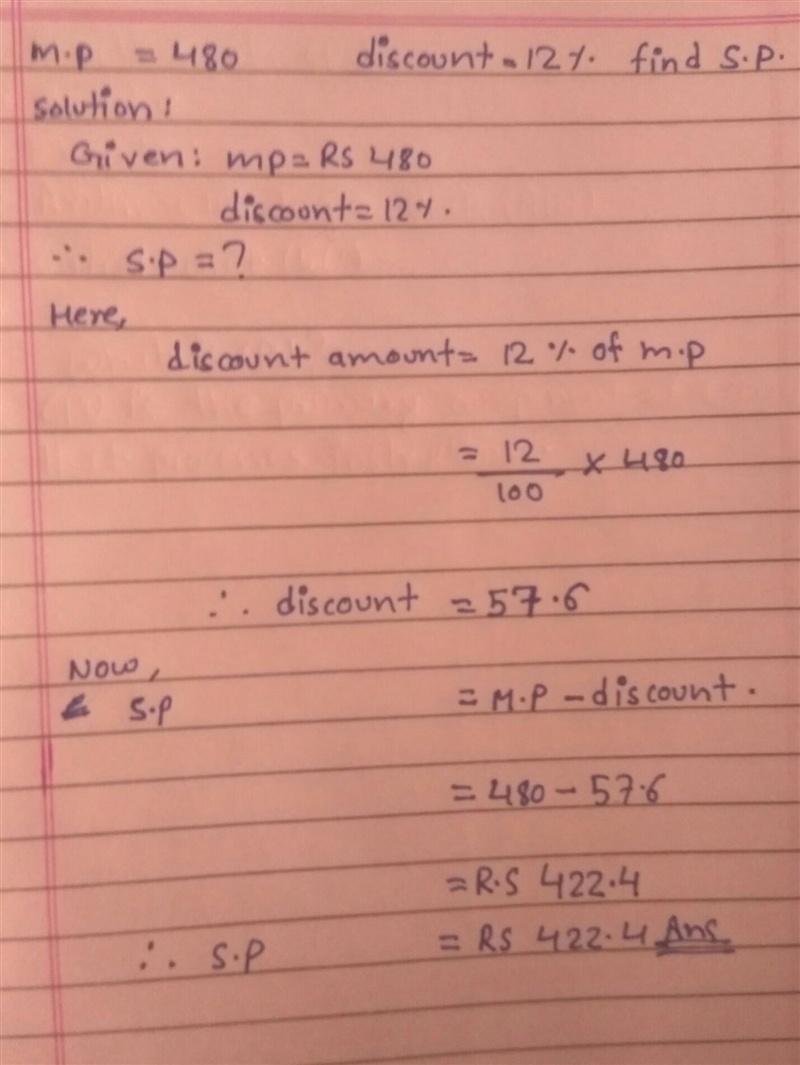 m.p = 480 discount = 12% find S.P.
Solution:
Given: mp = RS 480
discount = 12%.
∴ S.P = ?
Here,
discount amount = 12% of m.p
= 12/100 × 480
∴ discount = 57.6
Now,
S.P = M.P - discount.
= 480 - 57.6
= R.S 422.4
∴ S.P = RS 422.4 Ans